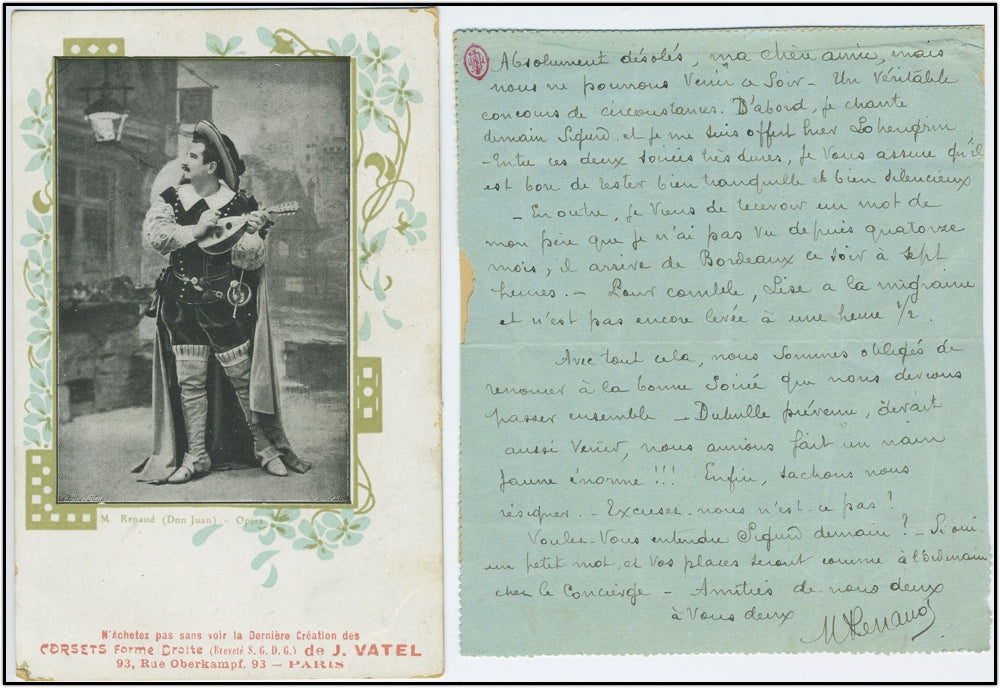 M. Renaud (Don Juan) - Opéra
N'Achetez pas sans voir la Dernière Création des
CORSETS Forme Droite (Breveté S. G. D. G.) de J. VATEL
93, Rue Oberkampf. 93 — PARIS
Absolument désolés, ma chère amie, mais
nous ne pourrons venir ce Soir - Un véritable
concours de circonstances. D'abord, je chante
demain Sigurd, et je me suis offert hier Lohengrin
- Entre ces deux soirées très dures, je vous assure qu'il
est bon de rester bien tranquille et bien silencieux
- En outre, je viens de recevoir un mot de
mon père que je n'ai pas vu depuis quatorze
mois, il arrive de Bordeaux ce soir à sept
heures. - Pour comble, Lise a la migraine
et n'est pas encore levée à une heure 1/2.
Avec tout cela, nous sommes obligés de
renoncer à la bonne Soirée que nous devions
passer ensemble - Dubulle prévenu, devait
aussi venir, nous aurions fait un nain
jaune énorme !!! Enfin, sachons nous
résigner. - Excusez-nous n'est-ce pas ?
Voulez-vous entendre Sigurd demain ? - Si oui
un petit mot, et vos places seront comme à l'ordinaire
chez le Concierge - Amitiés de nous deux
à vous deux
MRenaud